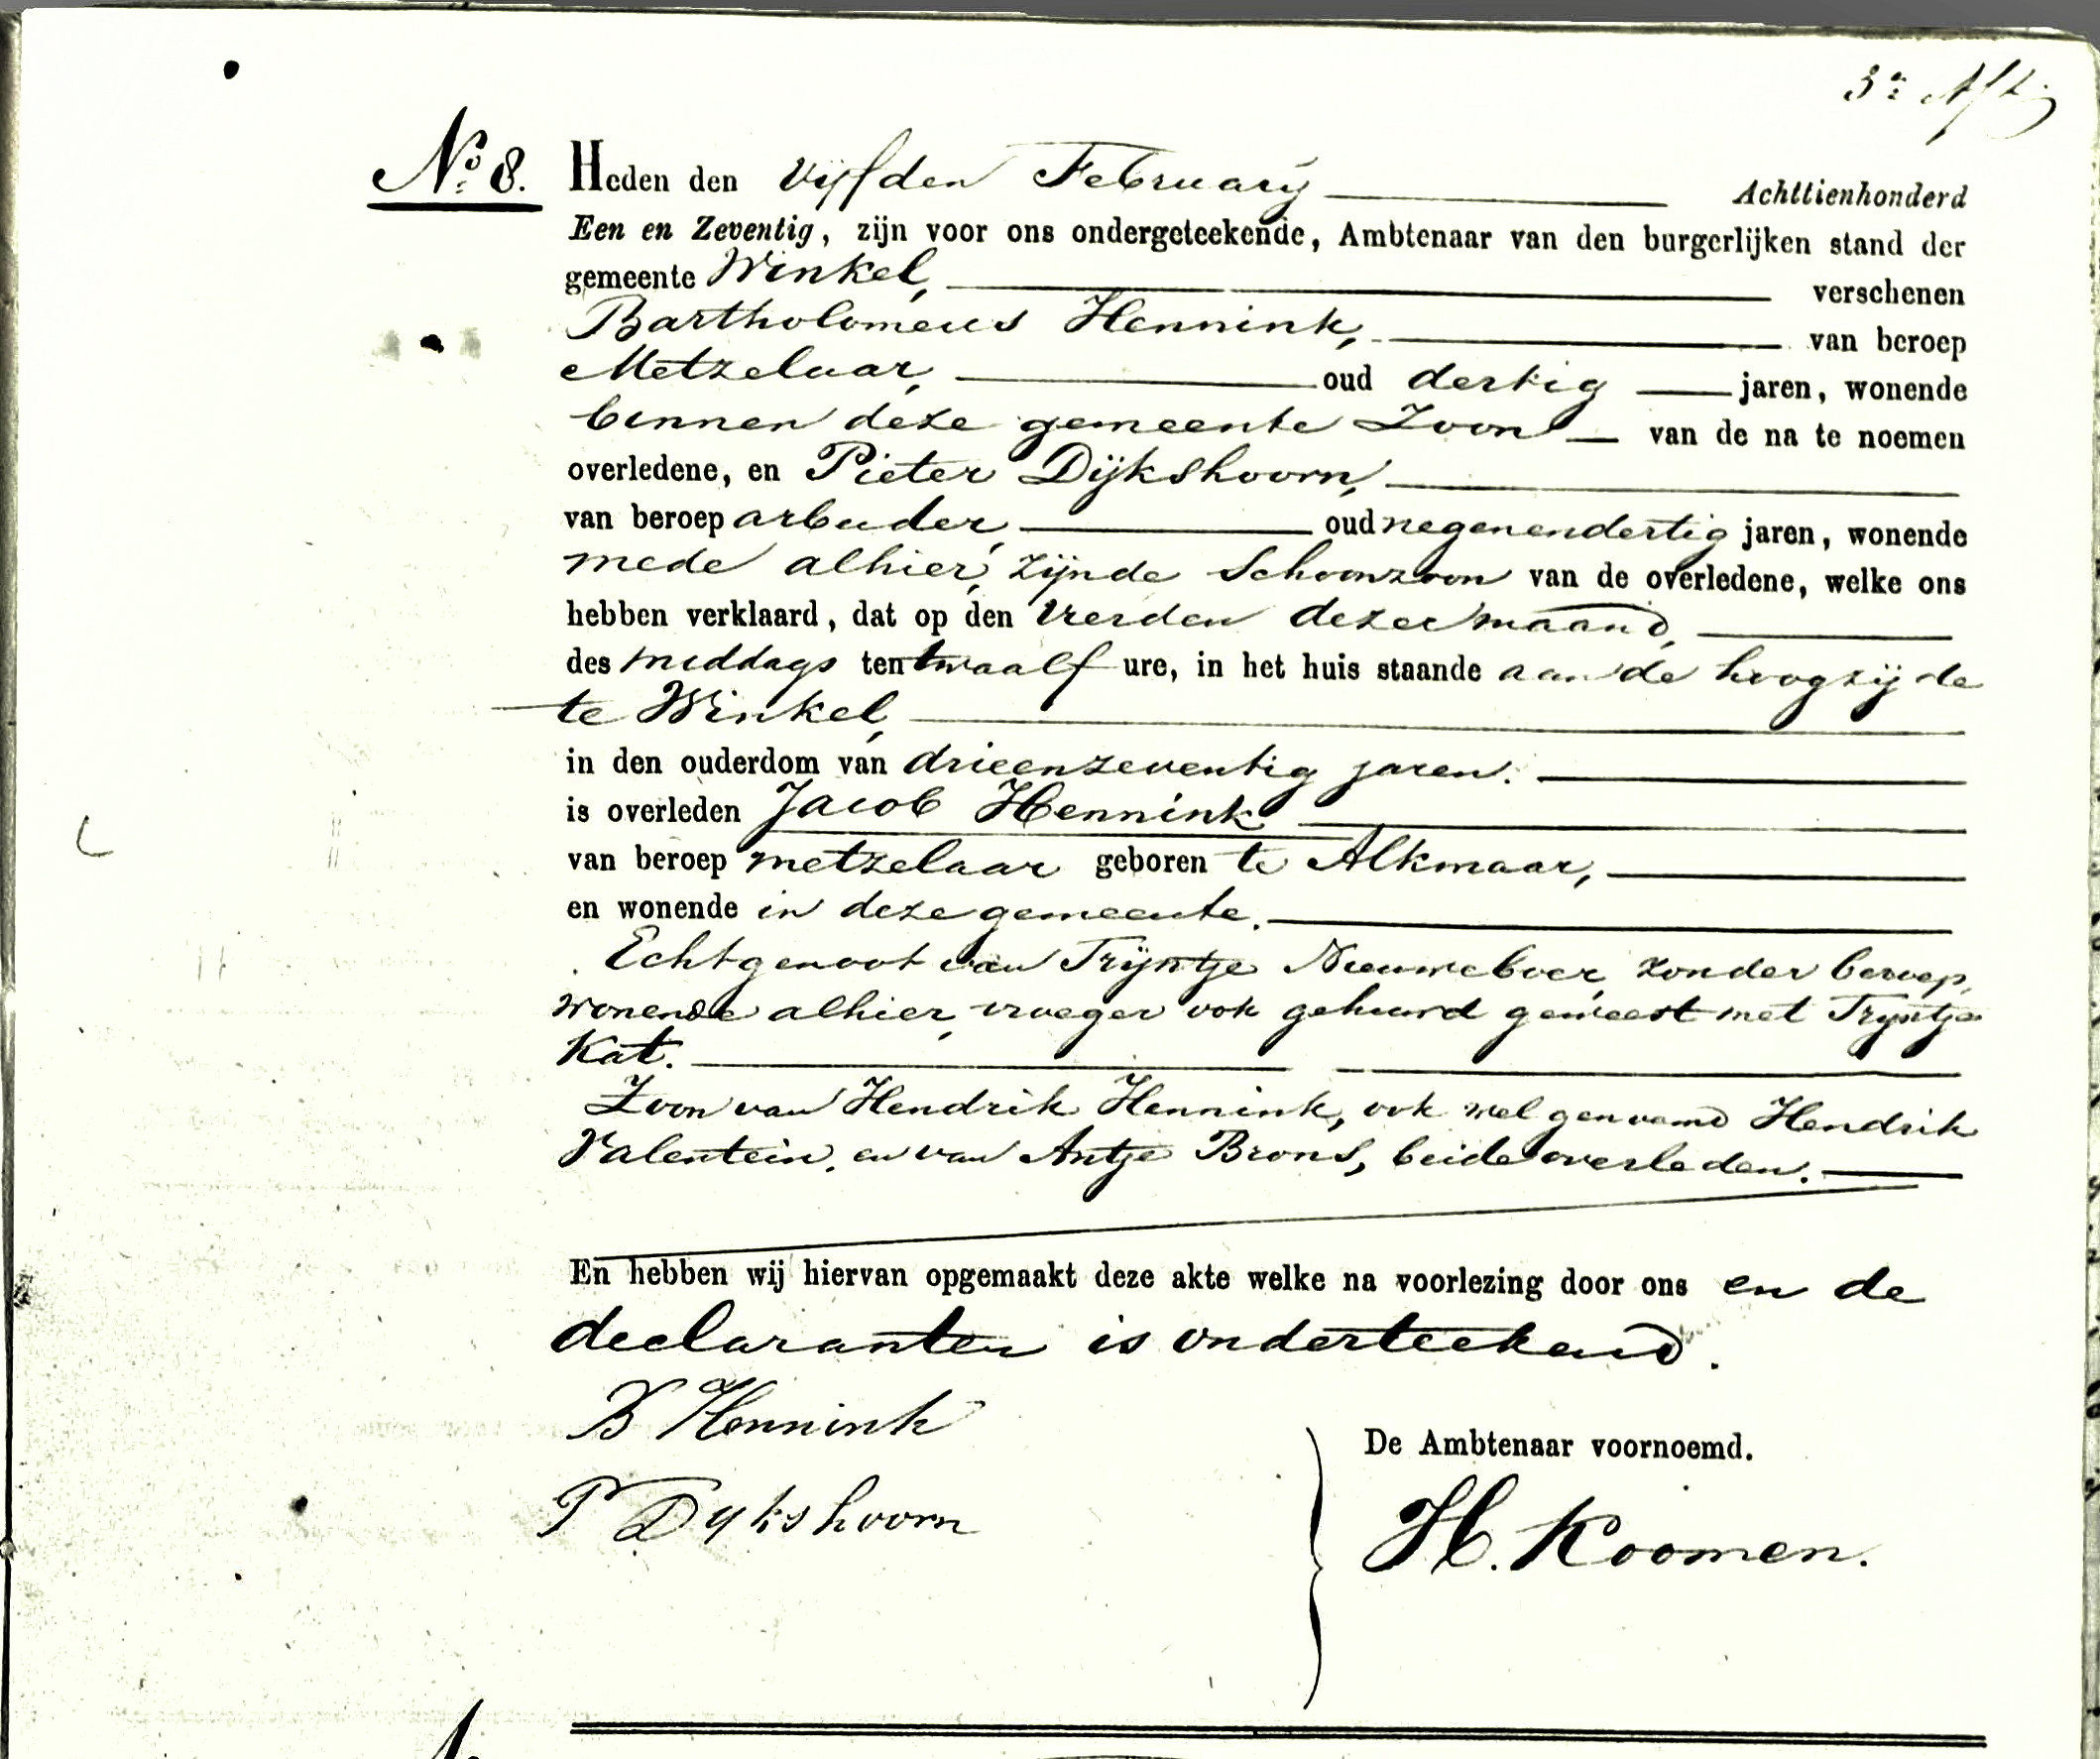 No 8. Heden den vijfden February Achttienhonderd
Een en Zeventig, zijn voor ons ondergeteekende, Ambtenaar van den burgerlijken stand der
gemeente Winkel, verschenen
Bartholomeus Hennink, van beroep
Metzelaar, oud dertig jaren, wonende
binnen deze gemeente Zoon van de na te noemen
overledene, en Pieter Dijkshoorn,
van beroep arbeider, oud negenendertig jaren, wonende
mede alhier, zijnde Schoonzoon van de overledene, welke ons
hebben verklaard, dat op den vierden dezer maand,
des middags ten twaalf ure, in het huis staande aan de hoogzijde
te Winkel,
in den ouderdom van drieenzeventig jaren.
is overleden Jacob Hennink
van beroep metzelaar geboren te Alkmaar,
en wonende in deze gemeente.
Echtgenoot van Trijntje Nieuweboer, zonder beroep,
wonende alhier, vroeger ook gehuwd geweest met Tryntje
Kat.
Zoon van Hendrik Hennink, ook wel genaamd Hendrik
Valentein, en van Antje Brons, beide overleden.
En hebben wij hiervan opgemaakt deze akte welke na voorlezing door ons en de
declaranten is onderteekend.
B Hennink
De Ambtenaar voornoemd.
P Dykshoorn
H. Koomen.